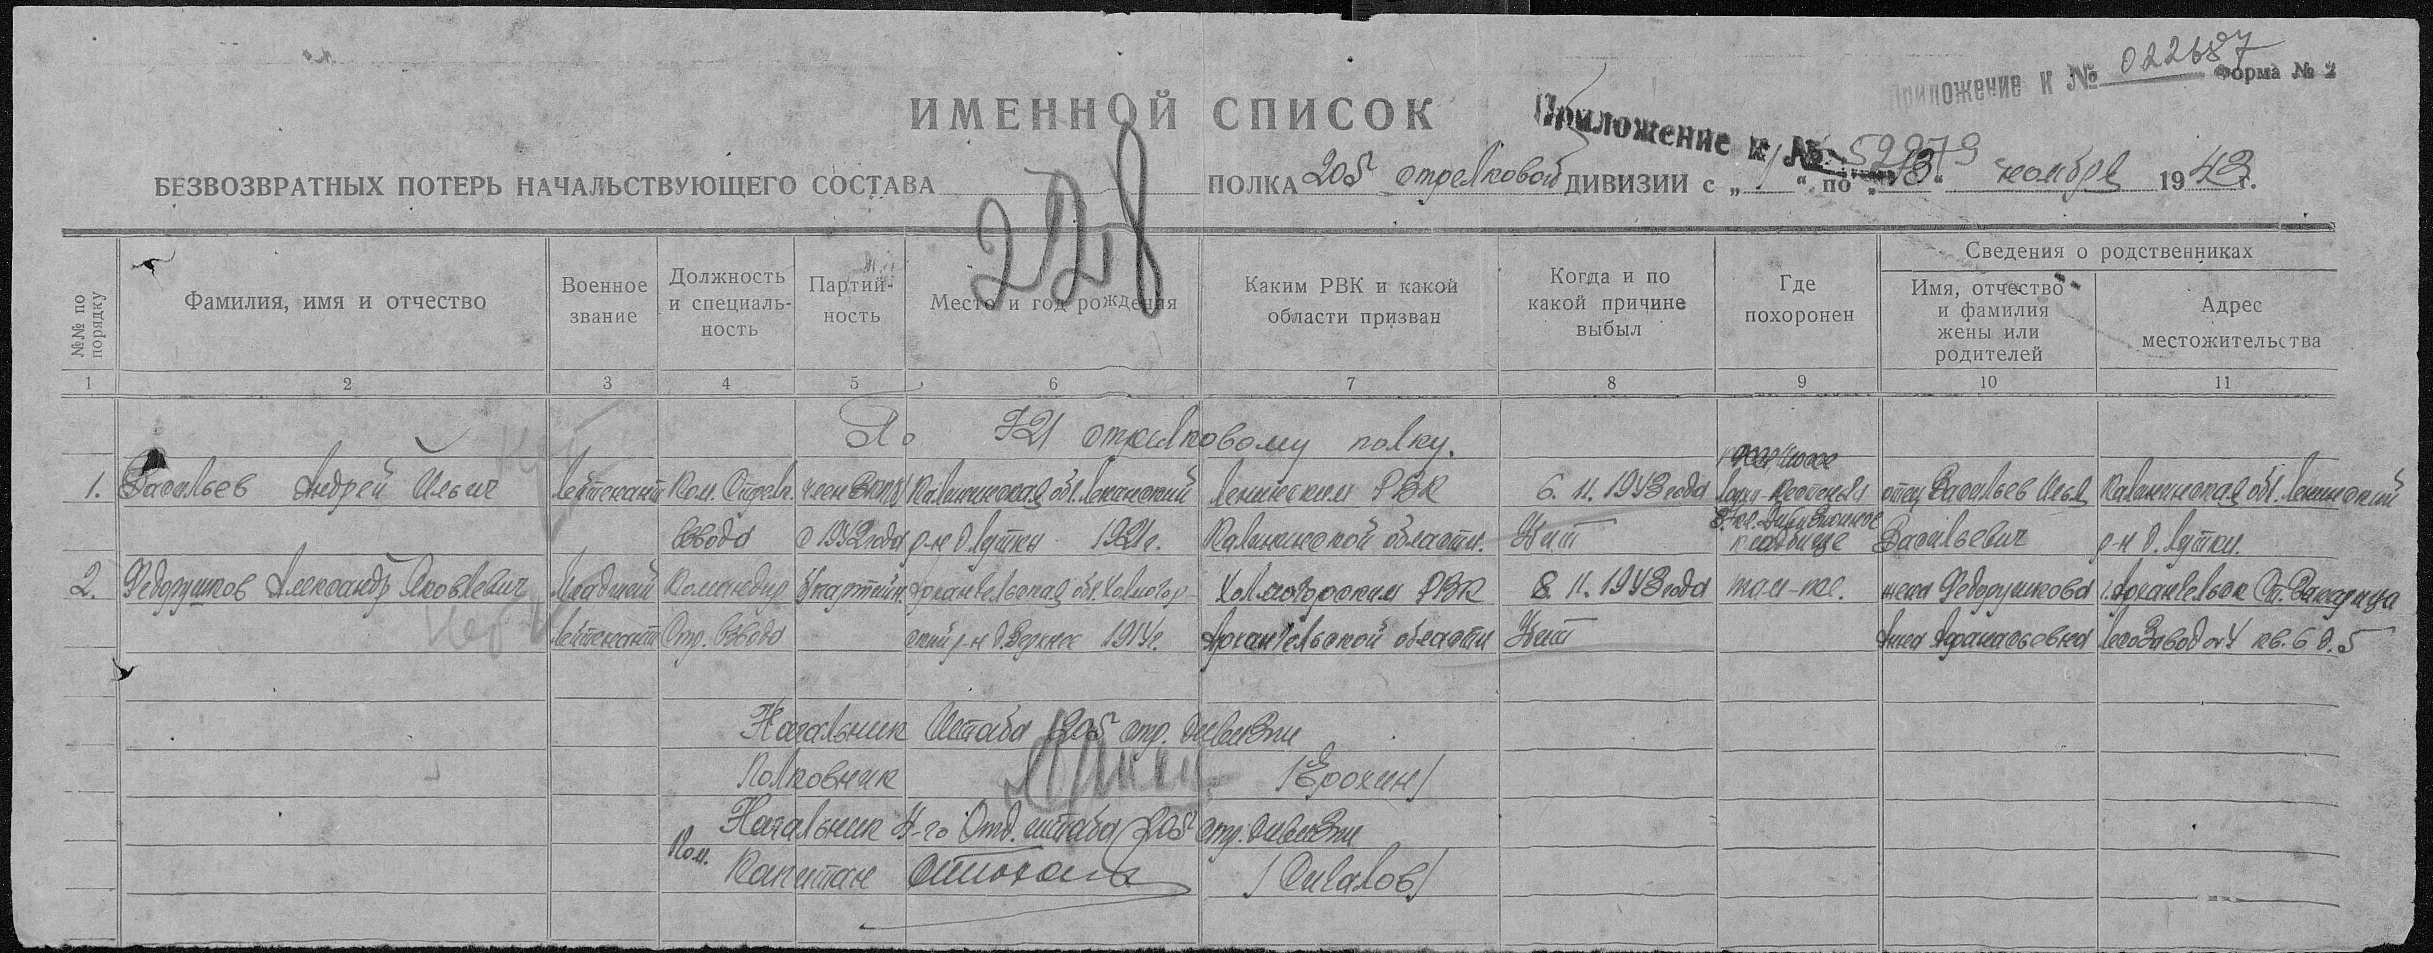 Приложение к № 022687 Форма № 2
ИМЕННОЙ СПИСОК
Приложение к № 52979
БЕЗВОЗВРАТНЫХ ПОТЕРЬ НАЧАЛЬСТВУЮЩЕГО СОСТАВА ПОЛКА 205 стрелковой ДИВИЗИИ с „ 1 “ по „ 13 “ ноября 1943 г.
228
№№ по порядку
Фамилия, имя и отчество
Военное звание
Должность и специальность
Партийность
Место и год рождения
Каким РВК и какой области призван
Когда и по какой причине выбыл
Где похоронен
Сведения о родственниках
Имя, отчество и фамилия жены или родителей
Адрес местожительства
1 2 3 4 5 6 7 8 9 10 11
По 721 стрелковому полку.
1. Васильев Андрей Ильич Лейтенант Ком. Стрелк. член ВКП(б) Калининская обл. Ленинский Ленинским РВК 6.11.1943 года отец Васильев Илья Калининская обл. Ленинский
взвода с 1942 года р-н д. Лутки 1921г. Калининской области. Убит кладбище Васильевич р-н д. Лутки.
2. Федорушков Александр Яковлевич Младший Командир б/партейн. Архангельская обл. Холмогор- Холмогорским РВК 8.11.1943 года там-же. жена Федорушкова г. Архангельск Ст. Бакарица
лейтенант Стр. взвода ский р-н д. 1914г. Архангельской области Убит Анна Афанасьевна лесозавод № 4 кв. 6 д. 5
Начальник Штаба 205 стр. дивизии
Полковник /Ерохин/
Начальник 4-го Отд. штаба 205 стр. дивизии
Пом.
Капитан /Шивалов/